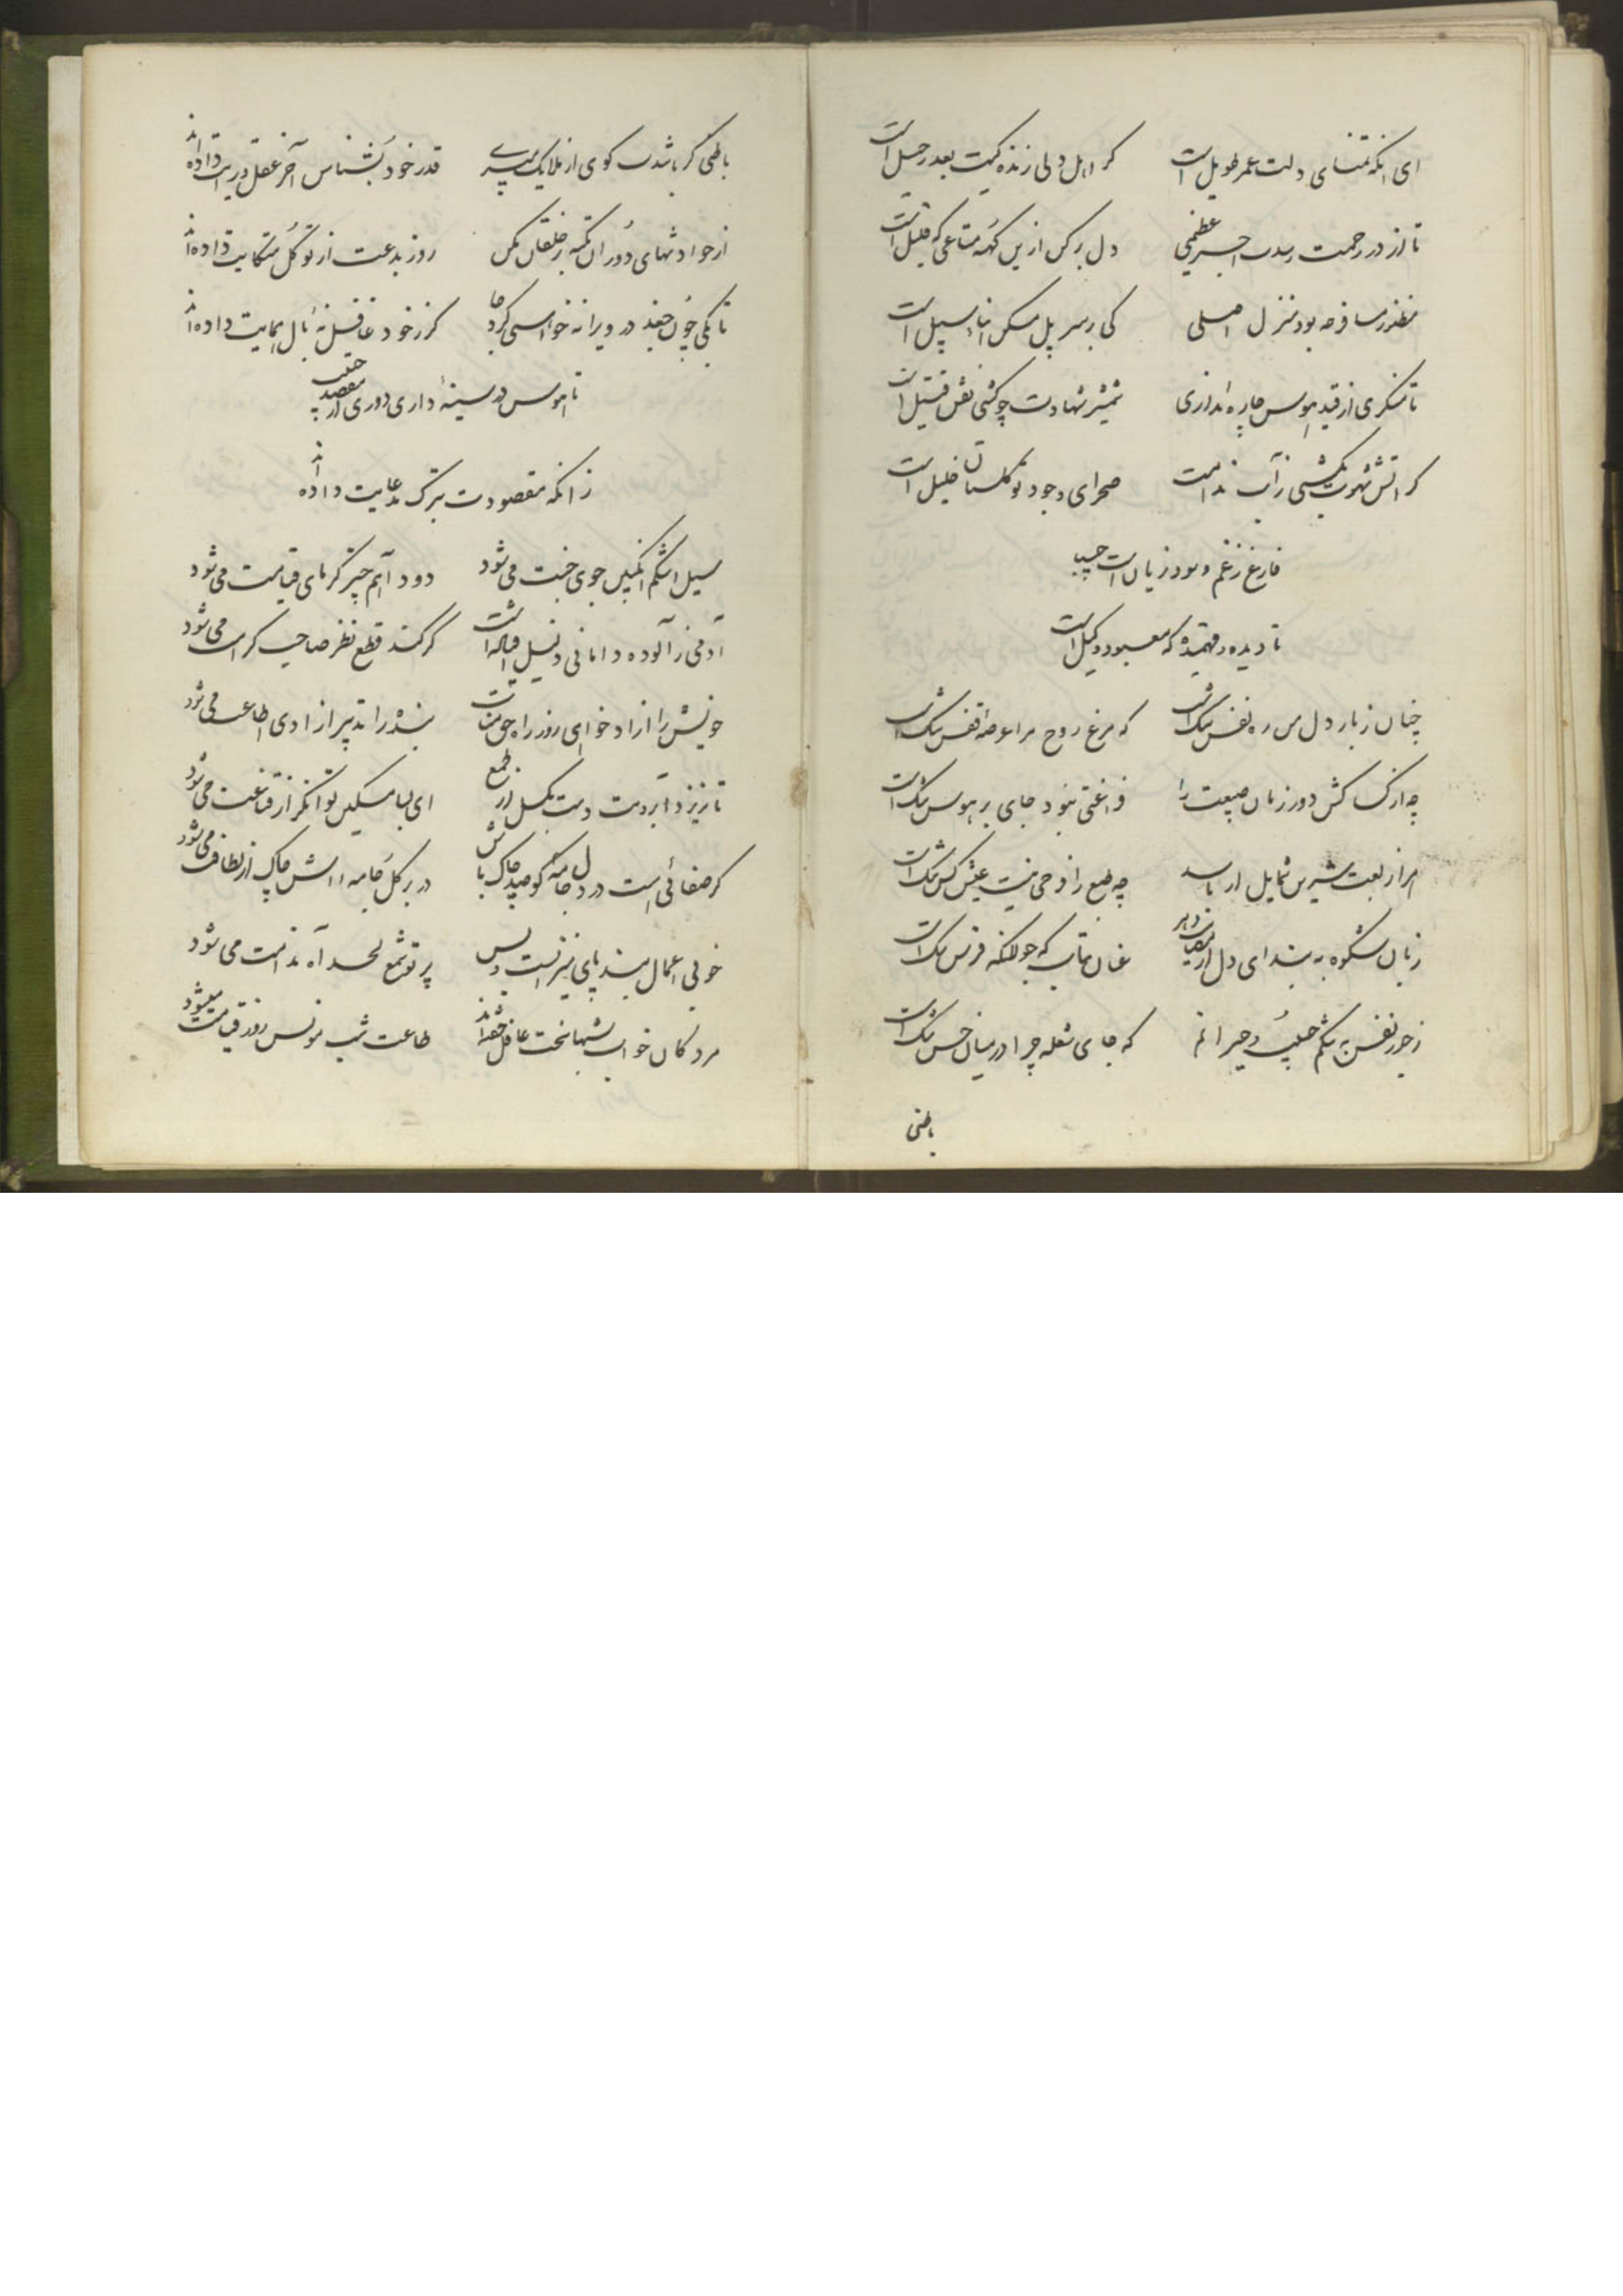 ای انکه تمنای دلت عمر طویل است
کر اهل دلی زنده کیت بعد رحیل است
تا از در رحمت رسدت اجر عظیمی
دل برکن ازین کهنه متاعی که قلیل است
منظور مسافر چه بود منزل اصلی
کی بر سر پل مسکن ابناء سبیل است
تا نگذری از قید هوس چاره نداری
شمشیر شهادت چو کشی نفس قتیل است
کر اتش شهوت بکشی زآب ندامت
صحرای وجود تو گلستان خلیل است
فارغ ز غم و سود و زیان است حبیب
تا دیده و فهمیده که معبود وکیل است
چنان ز بار دل من ره نفس تنک است
که مرغ روح مرا عرصه قفس تنک است
فراغتی نبود جای بر هوس تنک است
زبان شکوه به بند ای دل از
عنان بتاب که جولانکه فرس تنک است
ز جور نفس به تنگم حبیب و حیرانم
که جای شعله چرا در میان خس تنک است
باطنی
باطنی کر باشدت کوی از ملایک میبری
قدر خود بشناس آخر عقل و درایت داده‌اند
از حوادثهای دوران تکیه بر خلقان مکن
روز بدعت از توکل متکایت داده‌اند
تا بکی چون جغد در ویرانه خواهی کرد جا
کز خود غافل نهٔ بال همایت داده‌اند
تا هوس در سینه داری دوری از مقصد حبیب
زانکه مقصودت بترک مدعایت داده‌اند
سیل اشکم انکبین جوی جنت می‌شود
دود آهم چتر کرمای قیامت می‌شود
کر کند قطع نظر صاحب کرامت می‌شود
خویش را ازاد خواهی روز راه حق متاب
بنده را تدبیر ازادی اطاعت می‌شود
تا نریزد آبرویت دست بکسل از طمع
ای بسا مسکین توانکر از قناعت می‌شود
کر صفائی هست در دل جامه کو صد چاک باش
در بر گل جامه
پرتو شمع لحد آه ندامت می‌شود
مردکان خواب شبها سخت غافل خفته‌اند
طاعت شب مونس روز قیامت میشود